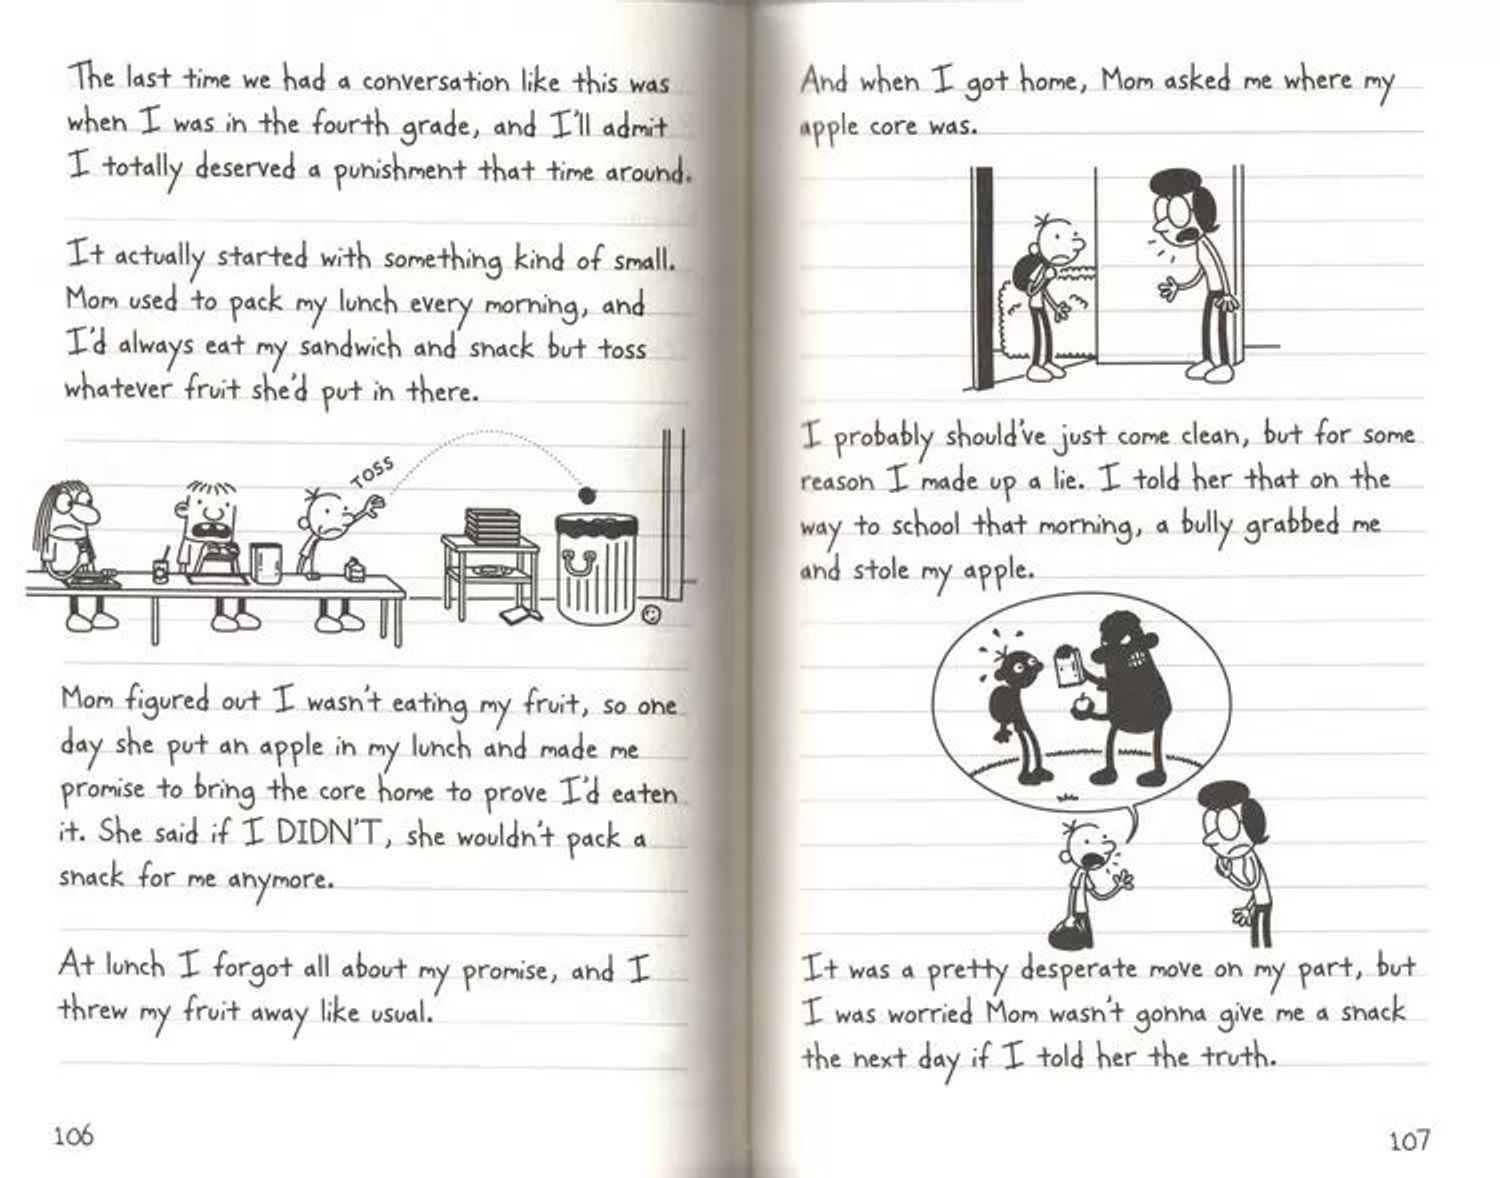 The last time we had a conversation like this was
when I was in the fourth grade, and I'll admit
I totally deserved a punishment that time around.
It actually started with something kind of small.
Mom used to pack my lunch every morning, and
I'd always eat my sandwich and snack but toss
whatever fruit she'd put in there.
TOSS
Mom figured out I wasn't eating my fruit, so one
day she put an apple in my lunch and made me
promise to bring the core home to prove I'd eaten
it. She said if I DIDN'T, she wouldn't pack a
snack for me anymore.
At lunch I forgot all about my promise, and I
threw my fruit away like usual.
106
And when I got home, Mom asked me where my
apple core was.
I probably should've just come clean, but for some
reason I made up a lie. I told her that on the
way to school that morning, a bully grabbed me
and stole my apple.
It was a pretty desperate move on my part, but
I was worried Mom wasn't gonna give me a snack
the next day if I told her the truth.
107